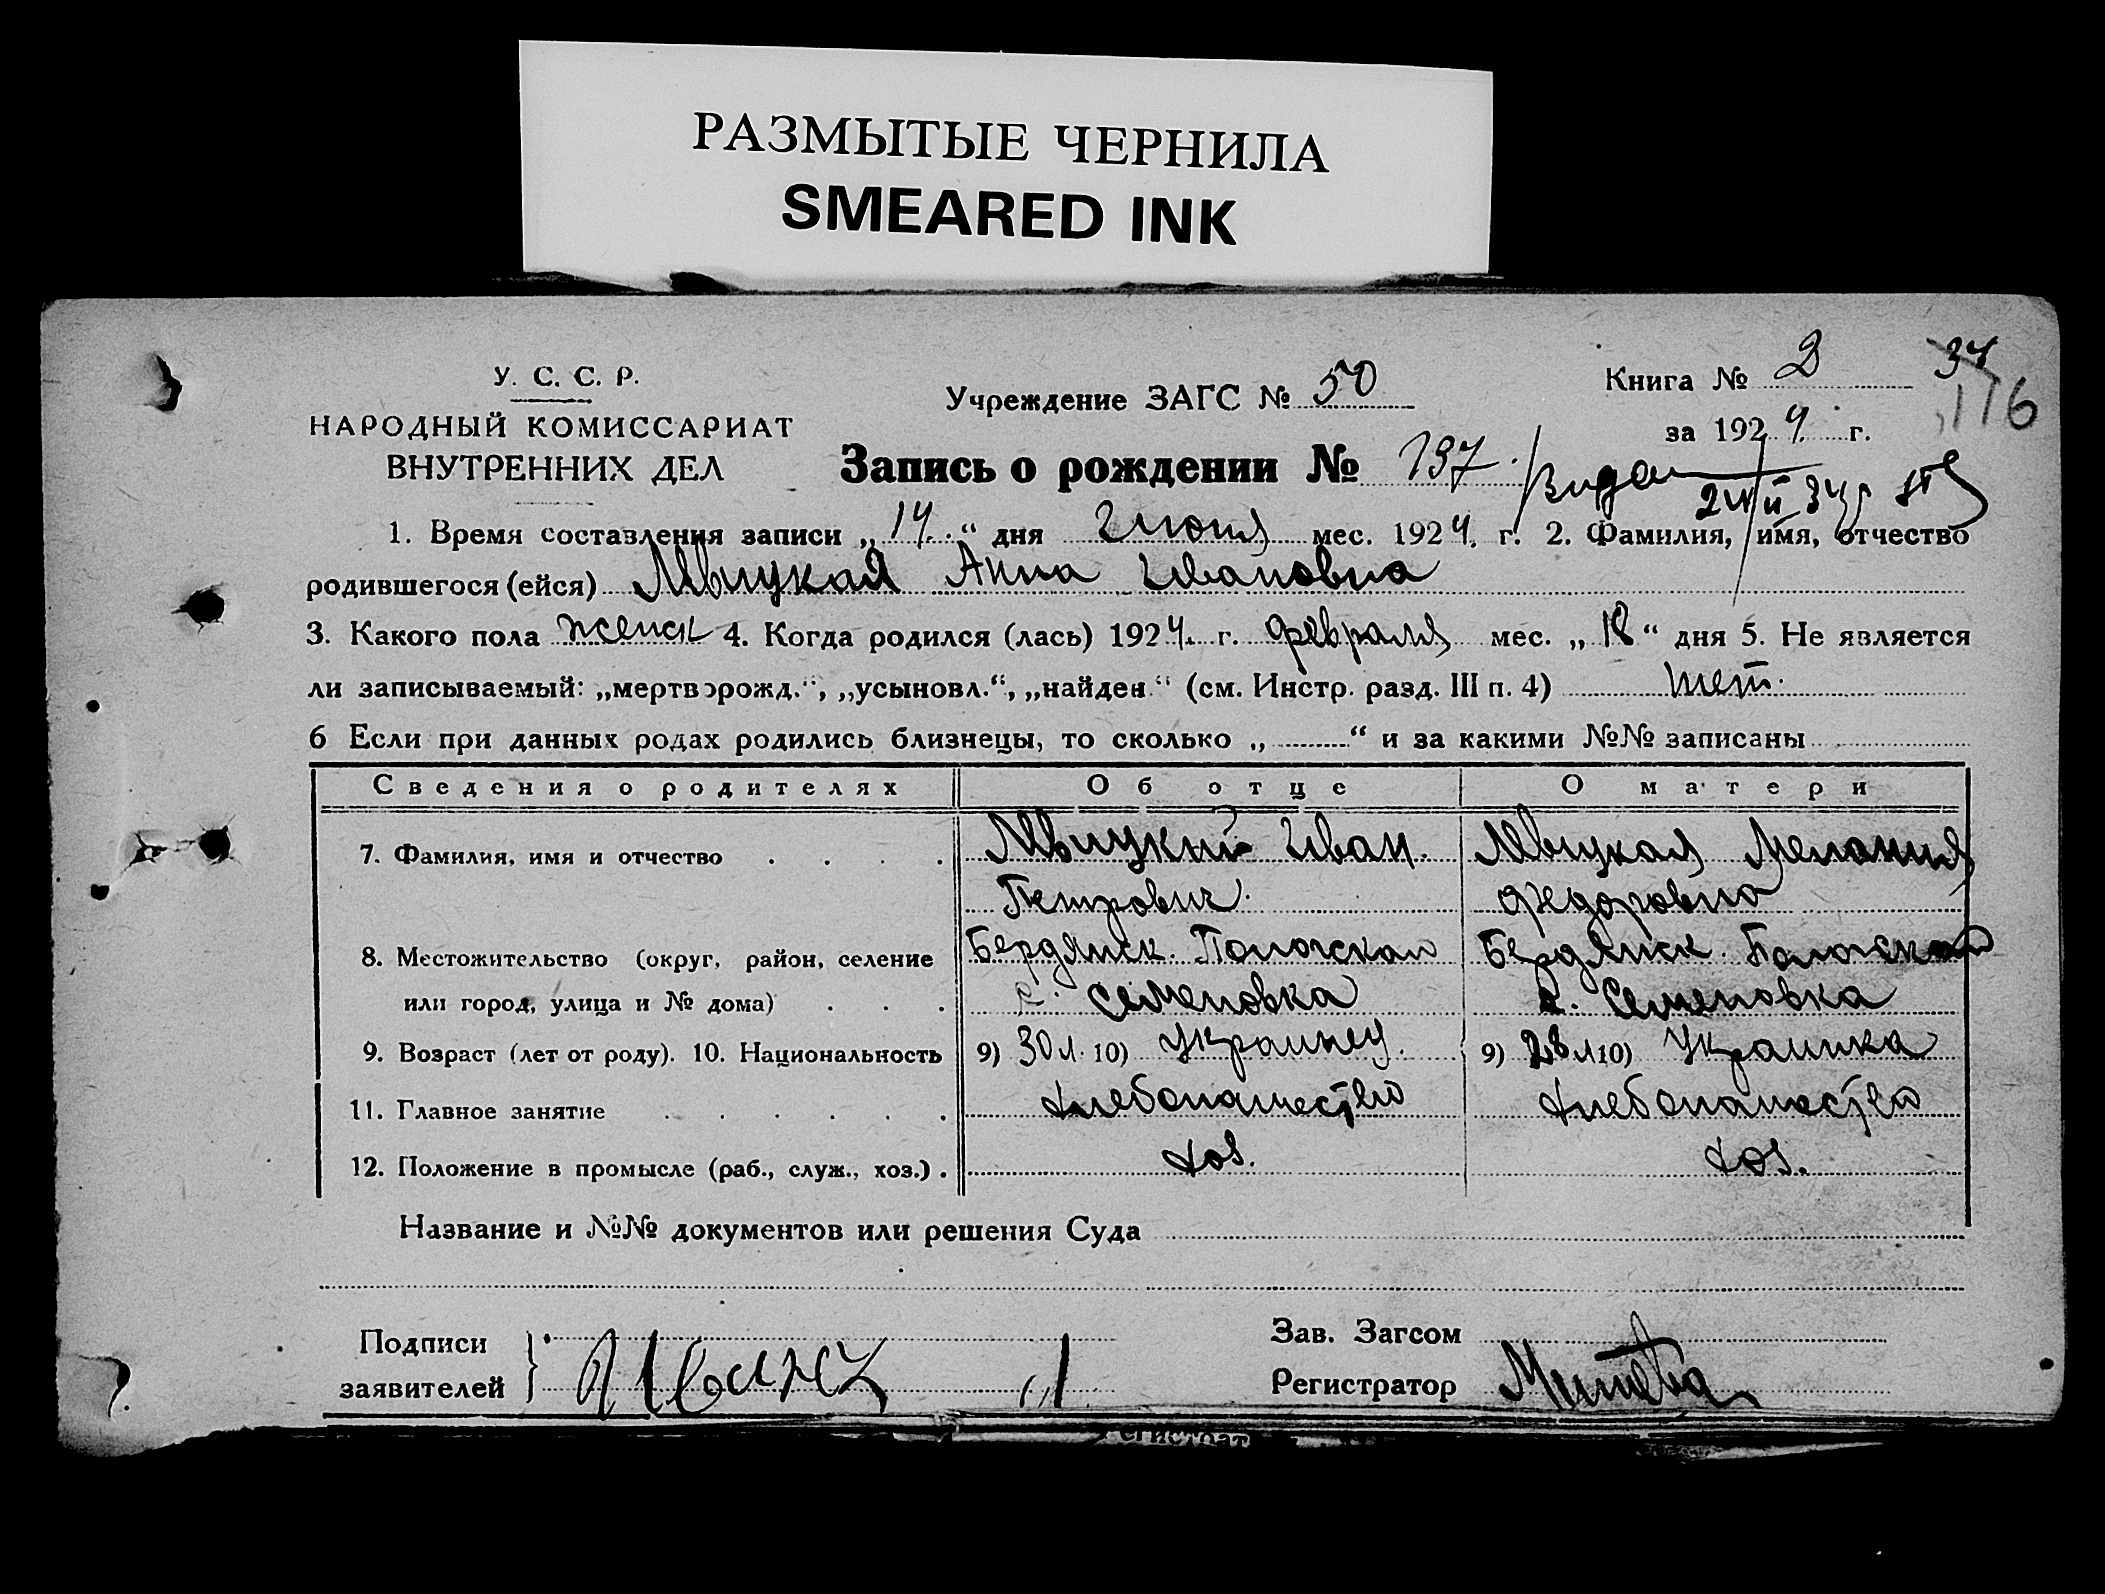 РАЗМЫТЫЕ ЧЕРНИЛА
SMEARED INK
У. С. С. Р.
НАРОДНЫЙ КОМИССАРИАТ
ВНУТРЕННИХ ДЕЛ
Учреждение ЗАГС № 50
Книга № 2
34
176
за 1924 г.
Запись о рождении № 137.
1. Время составления записи „14“ дня Июня мес. 1924 г. 2. Фамилия, имя, отчество
родившегося (ейся) Анна Ивановна
3. Какого пола женск 4. Когда родился (лась) 1924 г. февраля мес. „18“ дня 5. Не является
ли записываемый: „мертворожд.“, „усыновл.“, „найден.“ (см. Инстр. разд. III п. 4) нет.
6 Если при данных родах родились близнецы, то сколько „ “ и за какими №№ записаны
Сведения о родителях Об отце О матери
7. Фамилия, имя и отчество Иван. Мелания
Петрович. Федоровна
8. Местожительство (округ, район, селение Бердянск.
или город, улица и № дома) с. Семеновка с. Семеновка
9. Возраст (лет от роду). 10. Национальность 9) 30 л. 10) Украинец. 9) 28 л 10) Украинка
11. Главное занятие хлебопашество хлебопашество
12. Положение в промысле (раб., служ., хоз.). хоз. хоз.
Название и №№ документов или решения Суда
Подписи
заявителей
Зав. Загсом
Регистратор